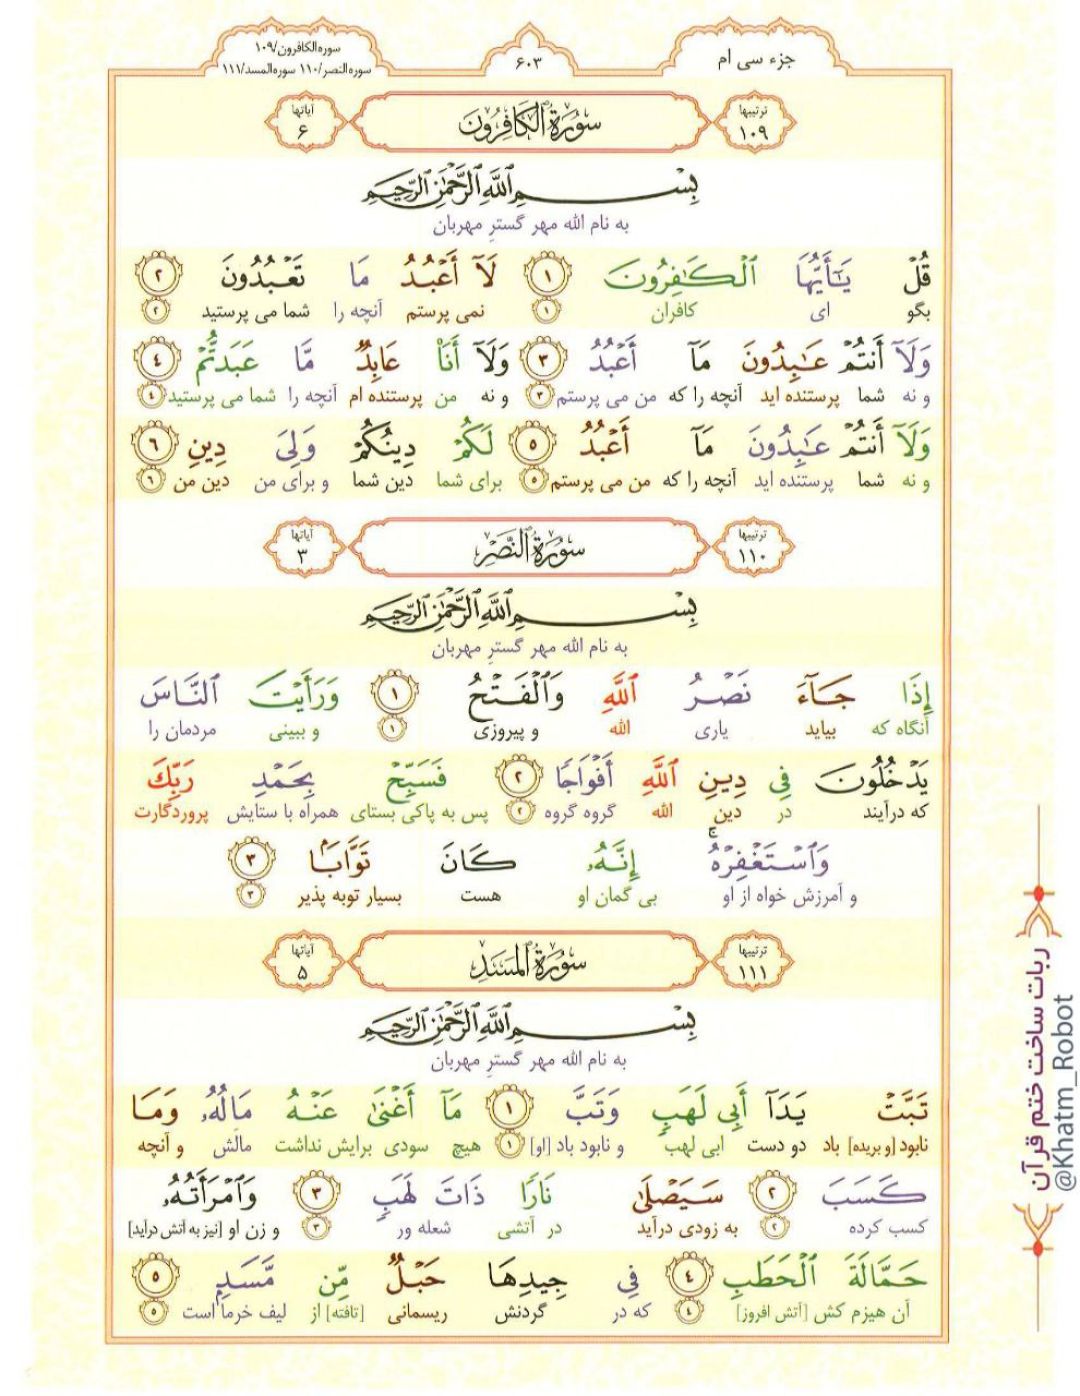 جزء سی ام
۶۰۳
سوره الکافرون/۱۰۹
سوره النصر/۱۱۰ سوره المسد/۱۱۱
ترتیبها
۱۰۹
سُورَةُ الكَافِرُون
آیاتها
۶
بِسْمِ اللَّهِ الرَّحْمَٰنِ الرَّحِيمِ
به نام الله مهر گسترِ مهربان
قُلْ يَـٰٓأَيُّهَا ٱلْكَـٰفِرُونَ ١ لَآ أَعْبُدُ مَا تَعْبُدُونَ ٢
بگو ای کافران ۱ نمی پرستم آنچه را شما می پرستید ۲
وَلَآ أَنتُمْ عَـٰبِدُونَ مَآ أَعْبُدُ ٣ وَلَآ أَنَا۠ عَابِدٌ مَّا عَبَدتُّمْ ٤
و نه شما پرستنده اید آنچه را که من می پرستم ۳ و نه من پرستنده ام آنچه را شما می پرستید ۴
وَلَآ أَنتُمْ عَـٰبِدُونَ مَآ أَعْبُدُ ٥ لَكُمْ دِينُكُمْ وَلِىَ دِينِ ٦
و نه شما پرستنده اید آنچه را که من می پرستم ۵ برای شما دین شما و برای من دین من ۶
ترتیبها
۱۱۰
سُورَةُ النَّصْرِ
آیاتها
۳
بِسْمِ اللَّهِ الرَّحْمَٰنِ الرَّحِيمِ
به نام الله مهر گسترِ مهربان
إِذَا جَآءَ نَصْرُ ٱللَّهِ وَٱلْفَتْحُ ١ وَرَأَيْتَ ٱلنَّاسَ
آنگاه که بیاید یاری الله و پیروزی ۱ و ببینی مردمان را
يَدْخُلُونَ فِى دِينِ ٱللَّهِ أَفْوَاجًا ٢ فَسَبِّحْ بِحَمْدِ رَبِّكَ
که درآیند در دین الله گروه گروه ۲ پس به پاکی بستای همراه با ستایش پروردگارت
وَٱسْتَغْفِرْهُ ۚ إِنَّهُۥ كَانَ تَوَّابًۢا ٣
و آمرزش خواه از او بی گمان او هست بسیار توبه پذیر ۳
ترتیبها
۱۱۱
سُورَةُ المَسَدِ
آیاتها
۵
بِسْمِ اللَّهِ الرَّحْمَٰنِ الرَّحِيمِ
به نام الله مهر گسترِ مهربان
تَبَّتْ يَدَآ أَبِى لَهَبٍ وَتَبَّ ١ مَآ أَغْنَىٰ عَنْهُ مَالُهُۥ وَمَا
نابود [و بریده] باد دو دست ابی لهب و نابود باد [او] ۱ هیچ سودی برایش نداشت مالش و آنچه
كَسَبَ ٢ سَيَصْلَىٰ نَارًا ذَاتَ لَهَبٍ ٣ وَٱمْرَأَتُهُۥ
کسب کرده ۲ به زودی درآید در آتشی شعله ور ۳ و زن او [نیز به آتش درآید]
حَمَّالَةَ ٱلْحَطَبِ ٤ فِى جِيدِهَا حَبْلٌ مِّن مَّسَدٍۭ ٥
آن هیزم کش [آتش افروز] ۴ که در گردنش ریسمانی [تافته] از لیف خرما است ۵
ربات ساخت ختم قرآن
@Khatm_Robot